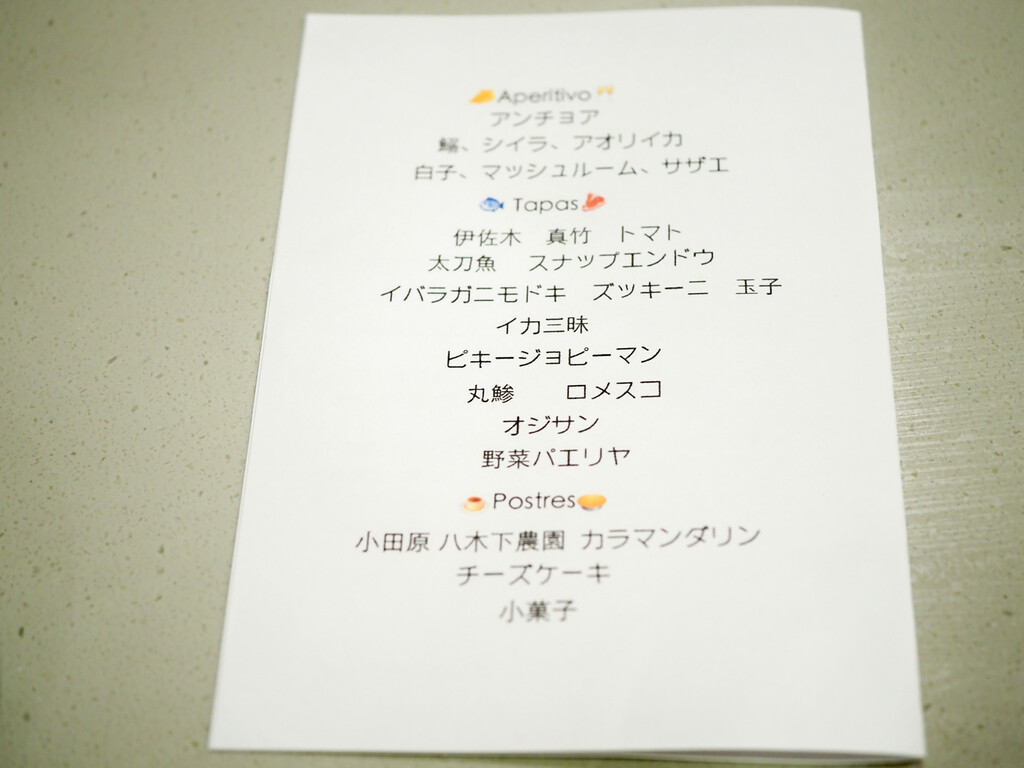 Aperitivo
アンチョア
鰯、シイラ、アオリイカ
白子、マッシュルーム、サザエ
Tapas
伊佐木 真竹 トマト
太刀魚 スナップエンドウ
イバラガニモドキ ズッキーニ 玉子
イカ三昧
ピキージョピーマン
丸鯵 ロメスコ
オジサン
野菜パエリヤ
Postres
小田原 八木下農園 カラマンダリン
チーズケーキ
小菓子